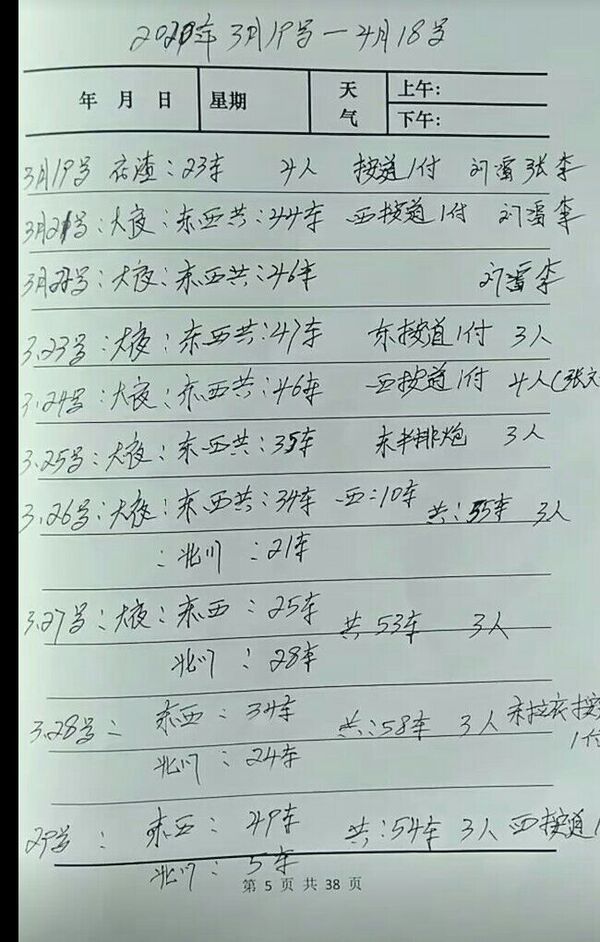 2021年 3月19号—4月18号
年 月 日 星期 天气 上午:
下午:
3月19号 石渣:23车 4人 按道1付 刘 张李
3月21号:大夜:东西共:44车 西按道1付 刘 李
3月22号:大夜:东西共:46车 刘 李
3.23号:大夜:东西共:47车 东按道1付 3人
3.24号:大夜:东西共:46车 西按道1付 4人(张文
3.25号:大夜:东西共:35车 东半排炮 3人
3.26号:大夜:东西共:34车 西:10车 共:55车 3人
:北川:21车
3.27号:大夜:东西:25车 共53车 3人
北川:28车
3.28号: 东西:34车 共:58车 3人 按
1付
北川:24车
29号: 东西:49车 共:54车 3人 西按道1
北川:5车
第 5 页 共 38 页